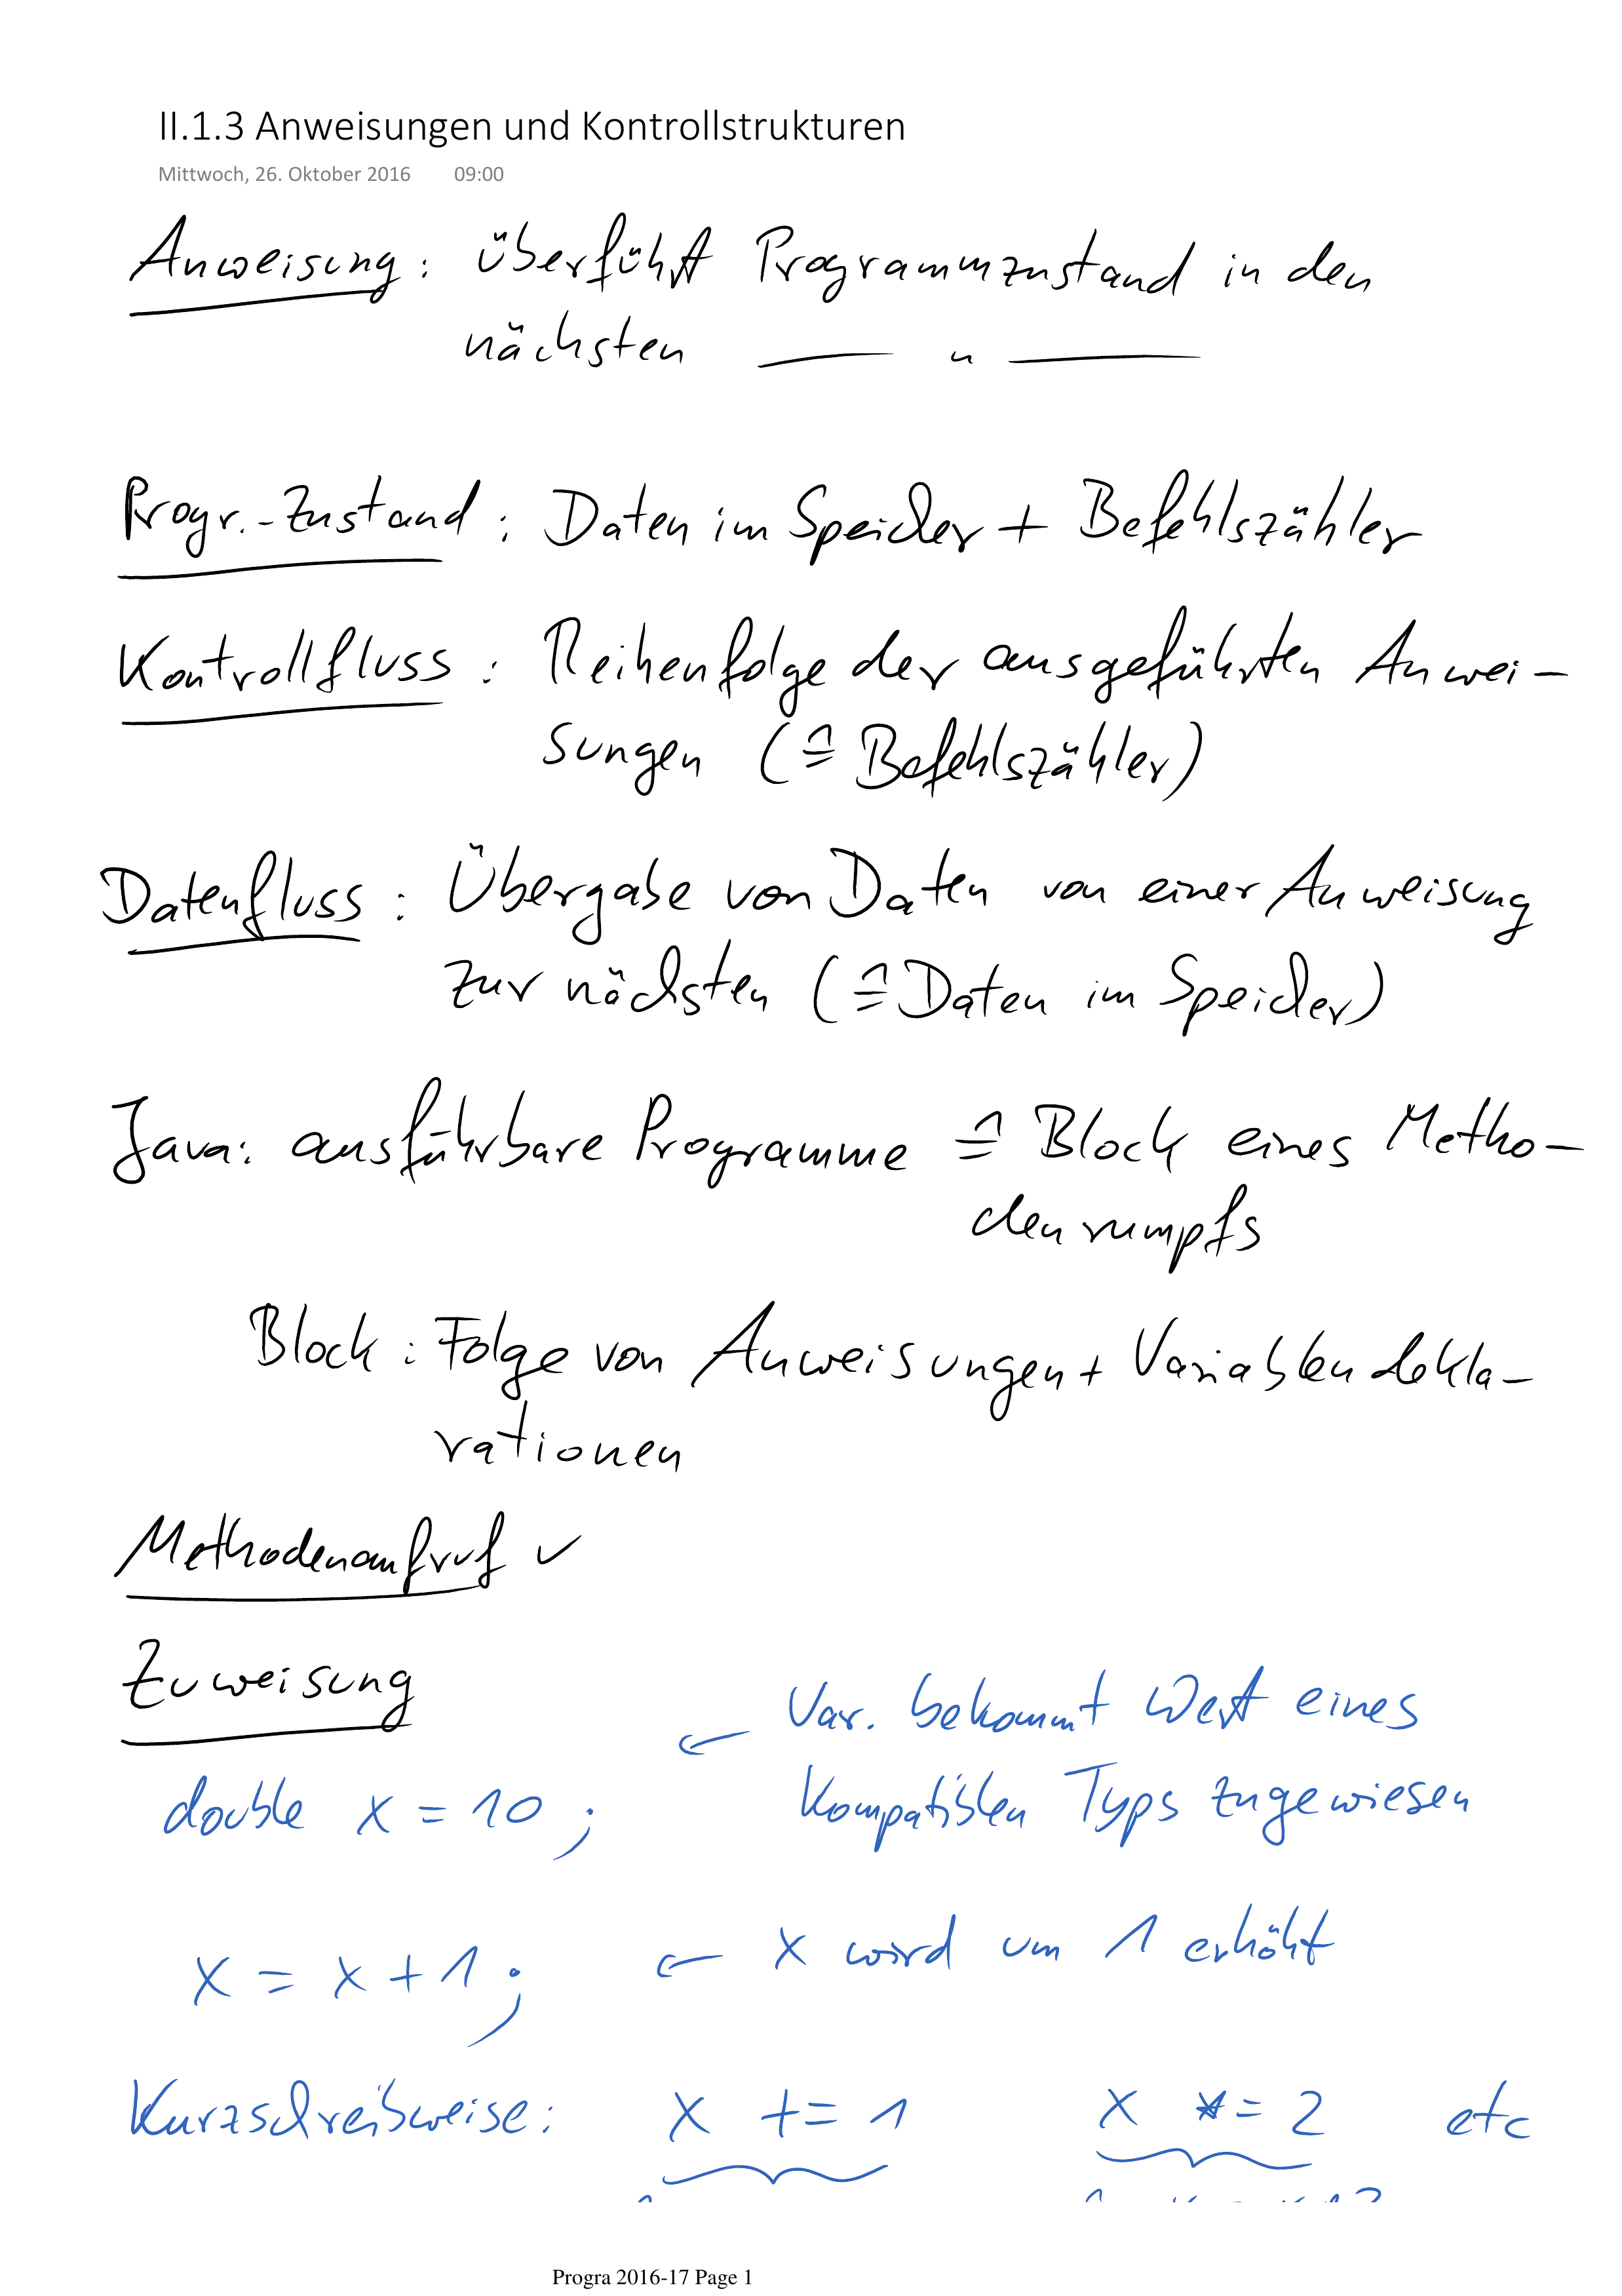 II.1.3 Anweisungen und Kontrollstrukturen
Mittwoch, 26. Oktober 2016 09:00
Anweisung: überführt Programmzustand in den
nächsten —— " ——
Progr.-Zustand: Daten im Speicher + Befehlszähler
Kontrollfluss: Reihenfolge der ausgeführten Anwei-
sungen (≙ Befehlszähler)
Datenfluss: Übergabe von Daten von einer Anweisung
zur nächsten (≙ Daten im Speicher)
Java: ausführbare Programme ≙ Block eines Metho-
denrumpfs
Block: Folge von Anweisungen + Variablendekla-
rationen
Methodenaufruf ✓
Zuweisung
← Var. bekommt Wert eines
kompatiblen Typs zugewiesen
double x = 10;
x = x + 1; ← x wird um 1 erhöht
Kurzschreibweise: x += 1 x *= 2 etc
Progra 2016-17 Page 1